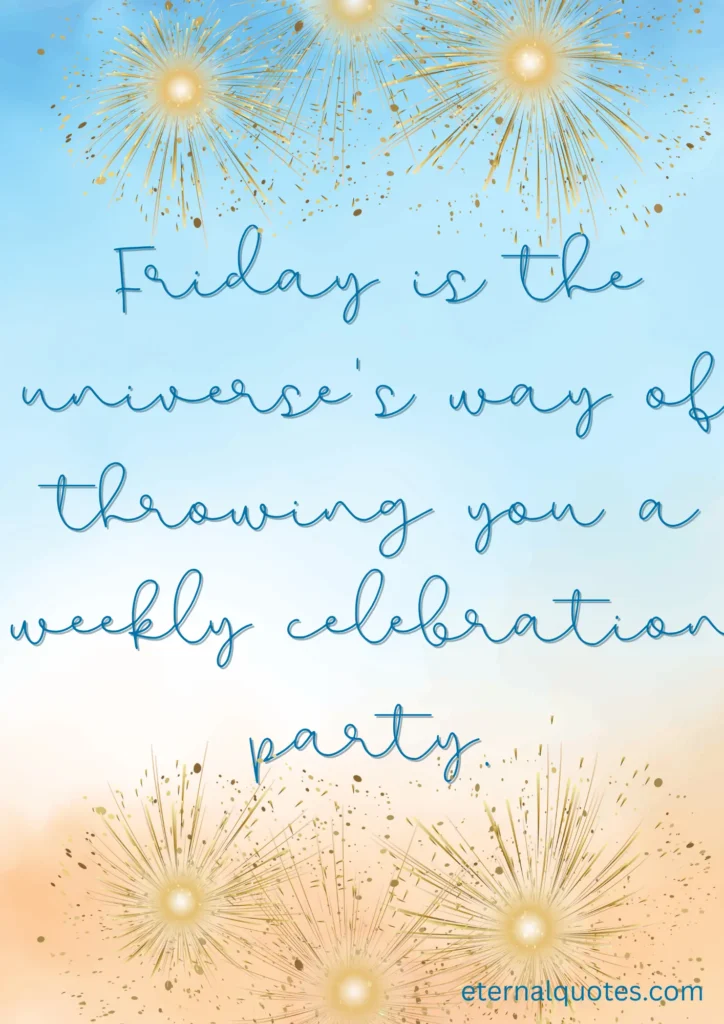 Friday is the
universe's way of
throwing you a
weekly celebration
party.
eternalquotes.com